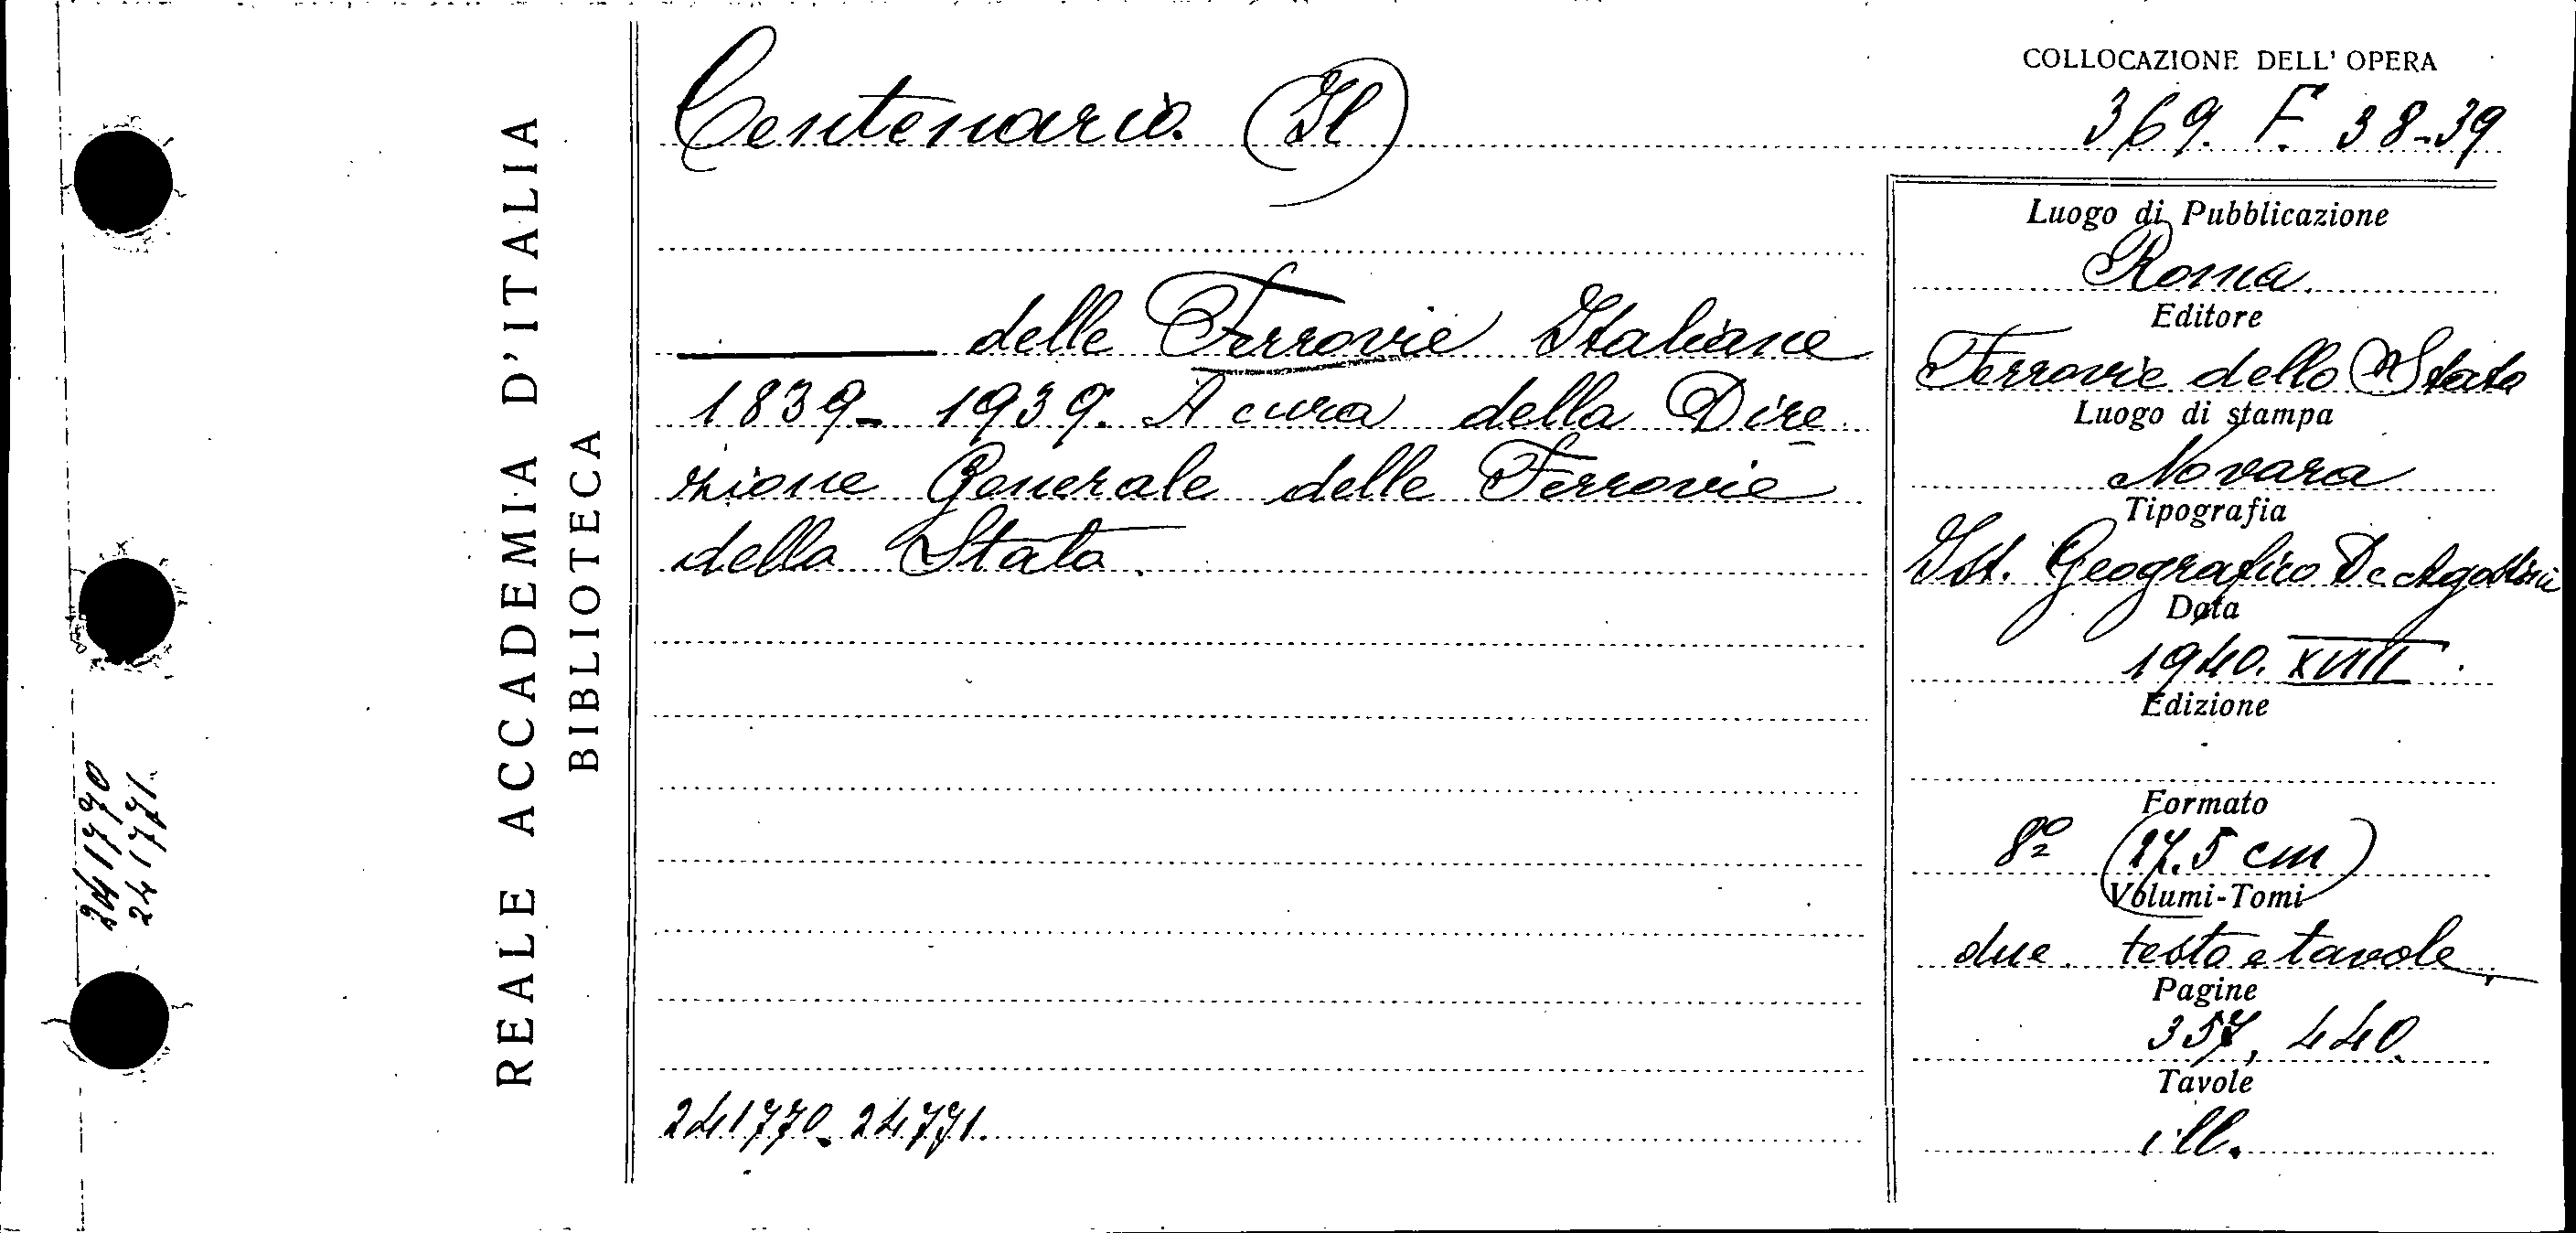 REALE ACCADEMIA D'ITALIA
BIBLIOTECA
241770
241771.
Centenario (Il)
delle Ferrovie Italiane
1839-1939. A cura della Dire
zione Generale delle Ferrovie
dello Stato.
241770-24771.
COLLOCAZIONE DELL' OPERA
369. F. 38-39
Luogo di Pubblicazione
Roma
Editore
Ferrovie dello Stato
Luogo di stampa
Novara
Tipografia
Ist. Geografico De Agostini
Data
1940. XVIII
Edizione
Formato
8º (27.5 cm)
Volumi-Tomi
due. testo e tavole
Pagine
357, 440.
Tavole
ill.